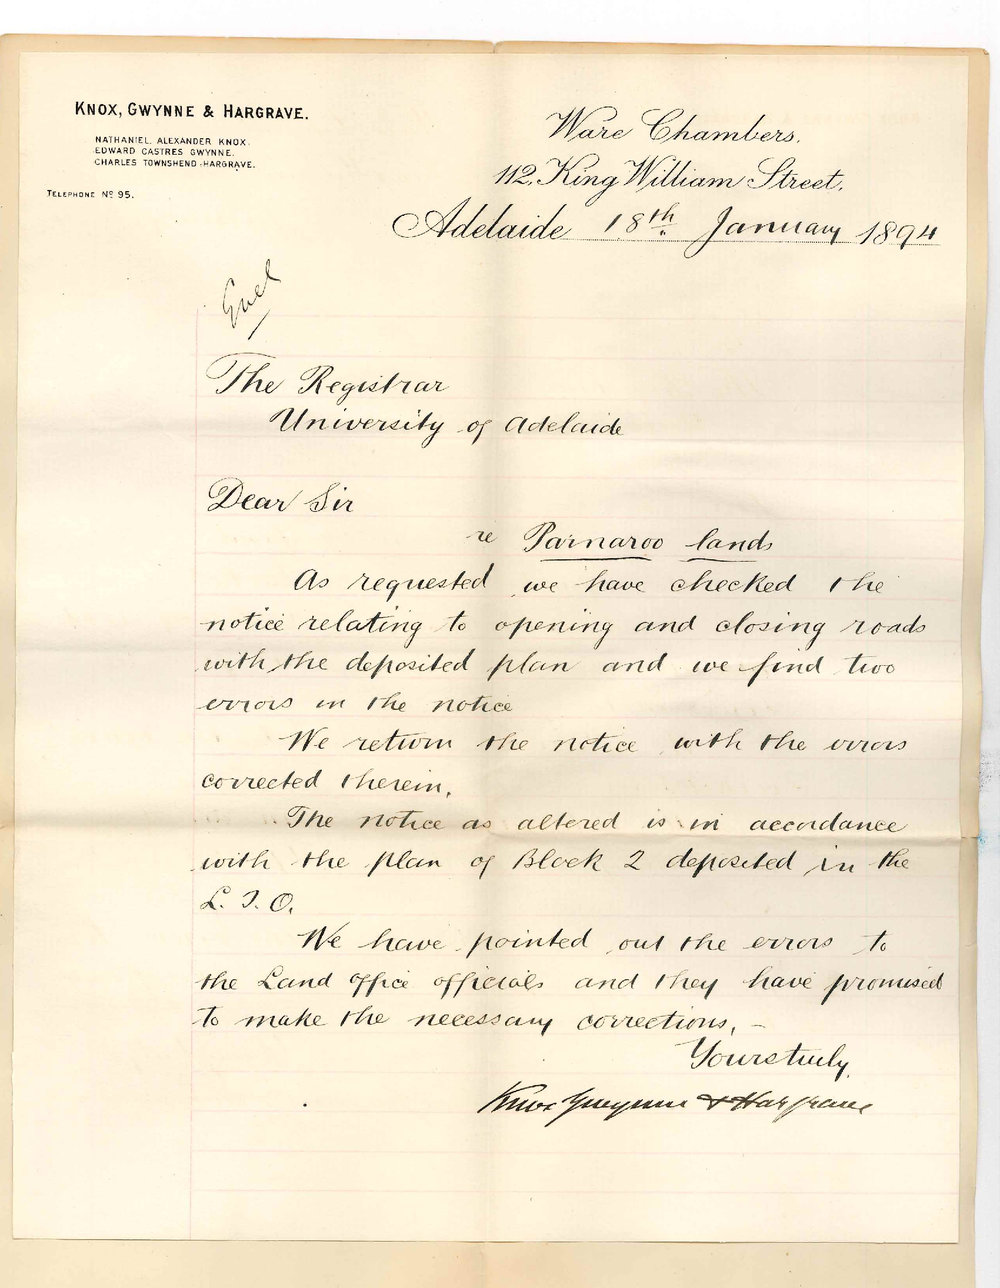 KNOX, GWYNNE & HARGRAVE.
NATHANIEL ALEXANDER KNOX.
EDWARD CASTRES GWYNNE.
CHARLES TOWNSHEND HARGRAVE.
TELEPHONE No 95.
Ware Chambers,
112, King William Street,
Adelaide 18th January 1894
Encl
The Registrar
University of Adelaide
Dear Sir
re Parnaroo lands
As requested we have checked the
notice relating to opening and closing roads
with the deposited plan and we find two
errors in the notice
We return the notice with the errors
corrected therein.
The notice as altered is in accordance
with the plan of Block 2 deposited in the
L. T. O.
We have pointed out the errors to
the Land Office officials and they have promised
to make the necessary corrections. –
Yours truly,
Knox Gwynne & Hargrave